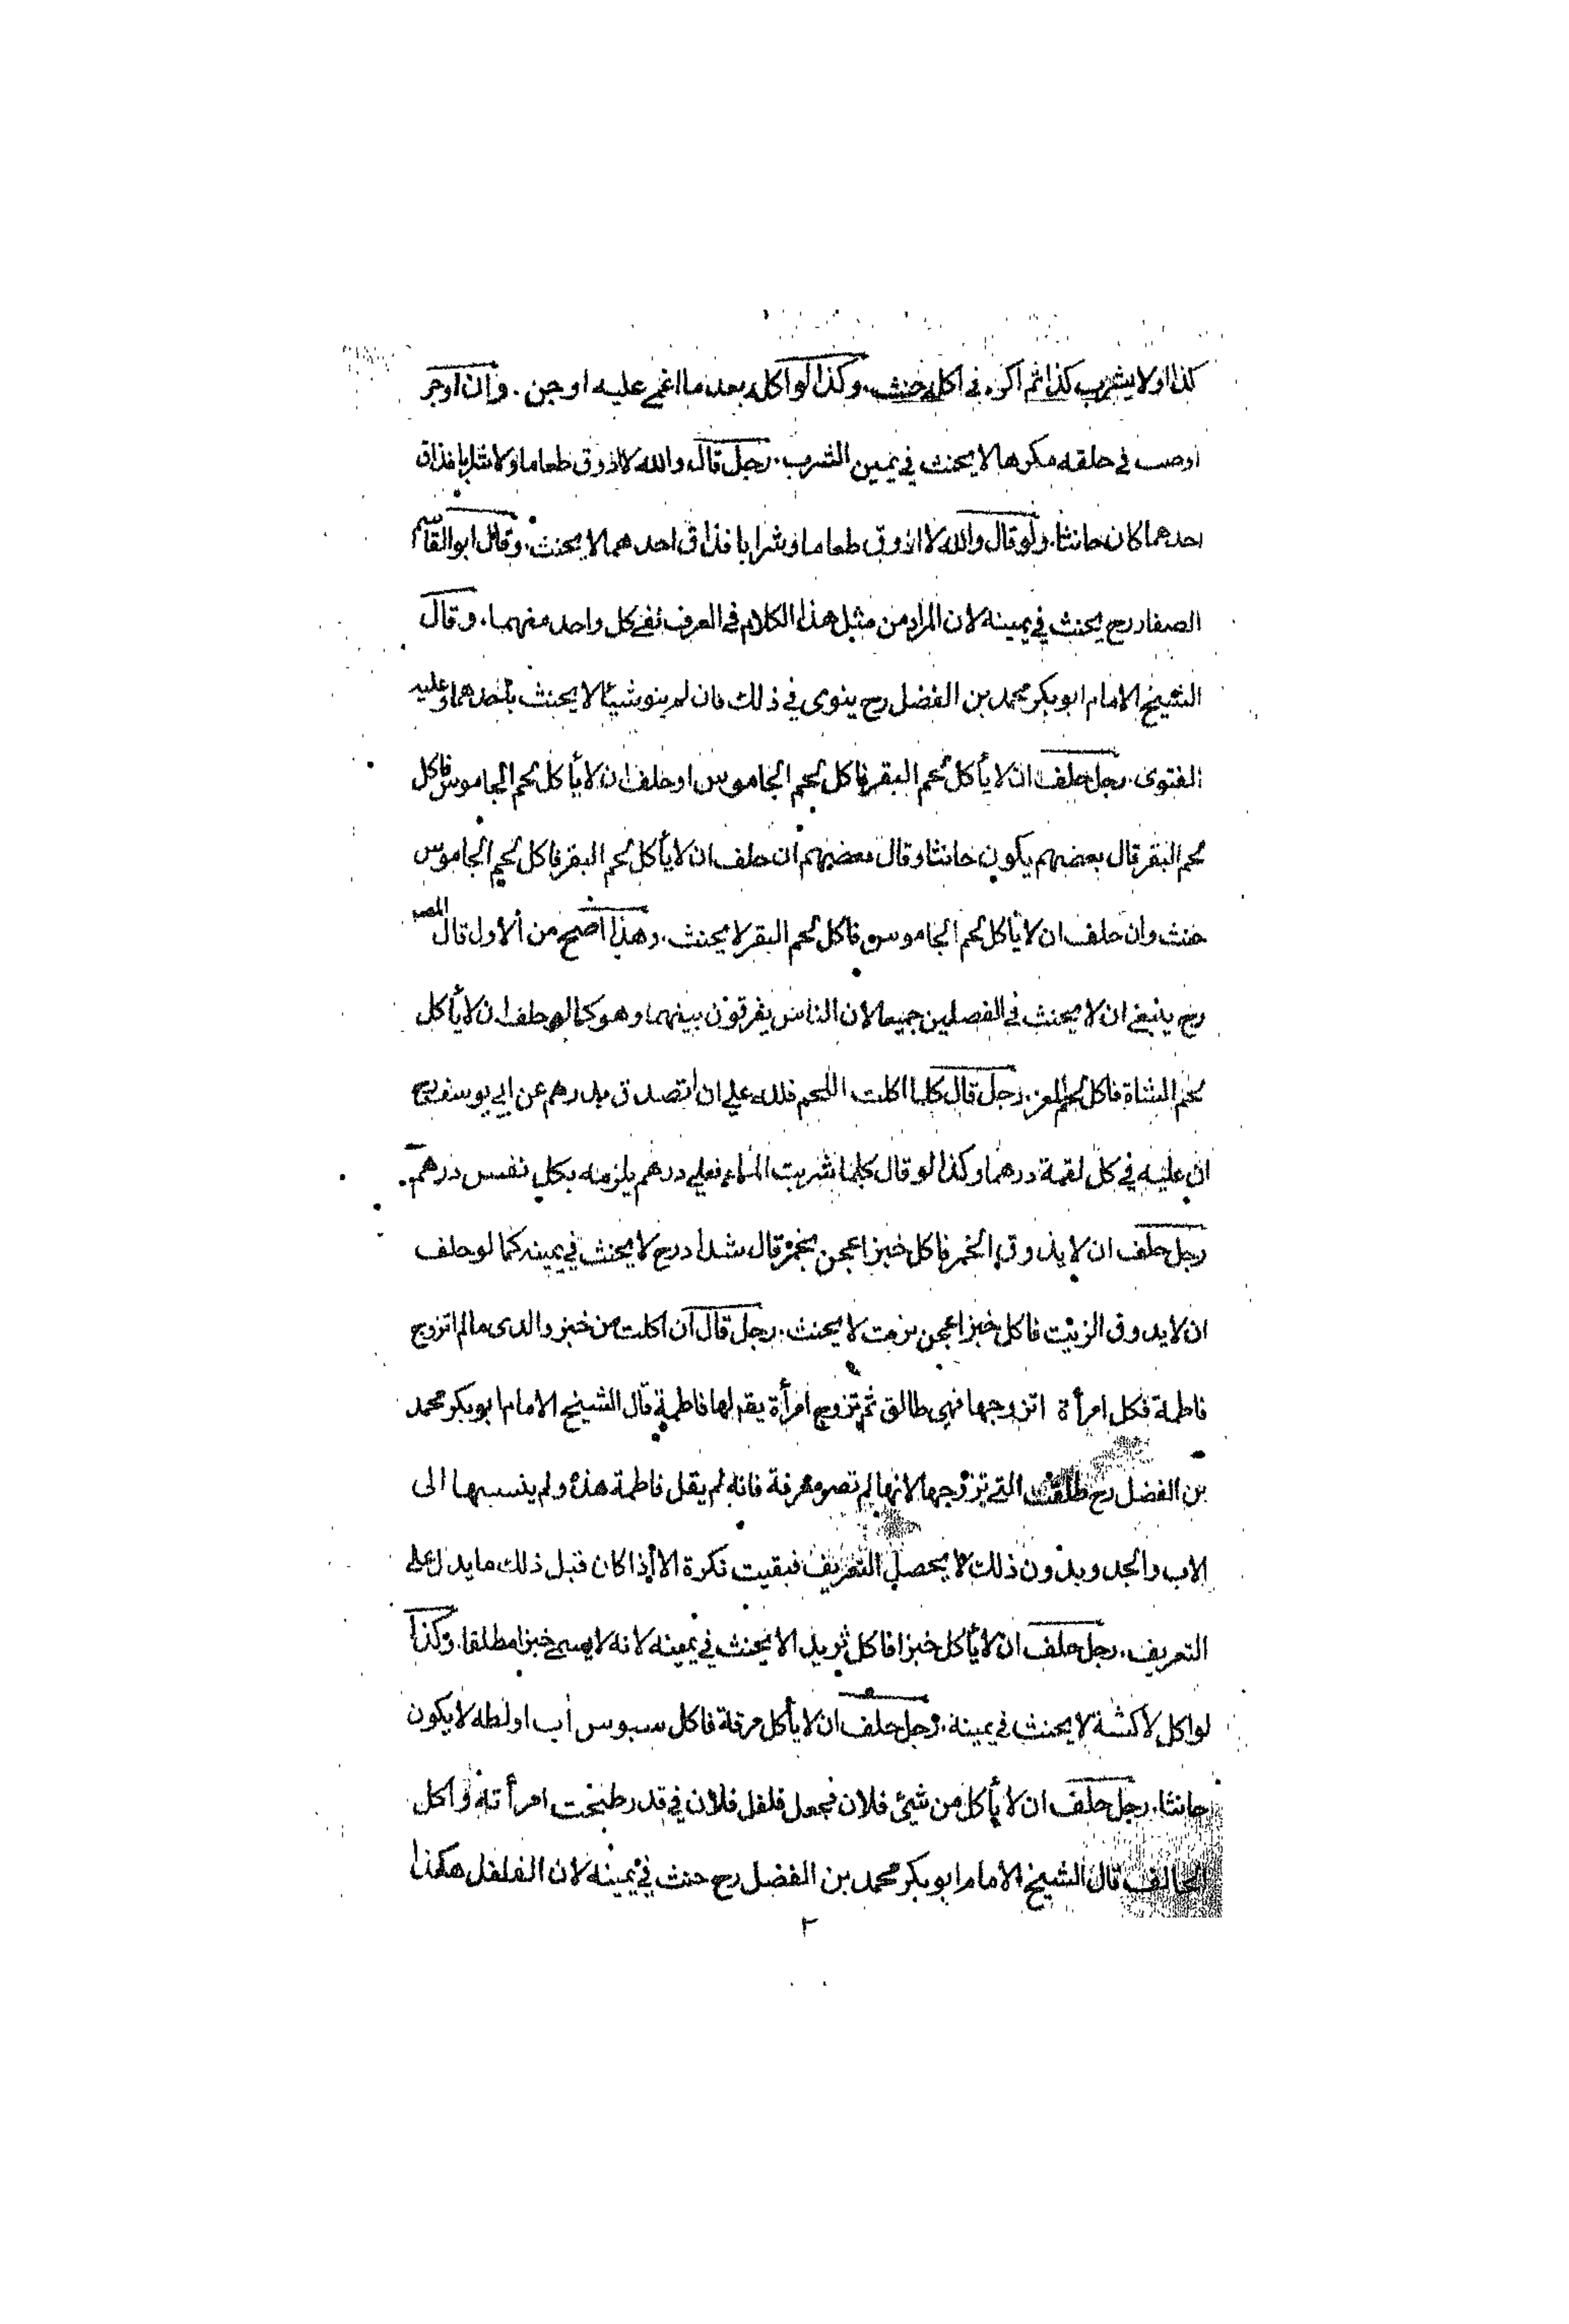 كذا او لا يشرب كذا ثم اكره في اكله حنث. وكذا لو اكله بعد ما اغمي عليه او جن. وان اوجر
او صب في حلقه مكرها لا يحنث في يمين الشرب. رجل قال والله لا اذوق طعاما ولا شرابا فذاق
احدهما كان حانثا. ولو قال والله لا اذوق طعاما وشرابا فذاق احدهما لا يحنث. وقال ابو القاسم
الصفار رح يحنث في يمينه لان المراد من مثل هذا الكلام في العرف نفي كل واحد منهما. وقال
الشيخ الامام ابو بكر محمد بن الفضل رح ينوى في ذلك فان لم ينو شيئا لا يحنث باحدهما وعليه
الفتوى. رجل حلف ان لا يأكل لحم البقر فاكل لحم الجاموس او حلف ان لا يأكل لحم الجاموس فاكل
لحم البقر قال بعضهم يكون حانثا وقال بعضهم ان حلف ان لا يأكل لحم البقر فاكل لحم الجاموس
حنث وان حلف ان لا يأكل لحم الجاموس فاكل لحم البقر لا يحنث. وهذا اصح من الاول قال المصـ
رح ينبغي ان لا يحنث في الفصلين جميعا لان الناس يفرقون بينهما وهو كما لو حلف ان لا يأكل
لحم الشاة فاكل لحم المعز. رجل قال كلما اكلت اللحم فلله علي ان اتصدق بدرهم عن ابي يوسف رح
ان عليه في كل لقمة درهما وكذا لو قال كلما شربت الماء فعلي درهم يلزمه بكل نفس درهم.
رجل حلف ان لا يذوق الخمر فاكل خبزا عجن بخمر قال شداد رح لا يحنث في يمينه كما لو حلف
ان لا يذوق الزيت فاكل خبزا عجن بزيت لا يحنث. رجل قال ان اكلت من خبز والدى ما لم اتزوج
فاطمة فكل امرأة اتزوجها فهي طالق ثم تزوج امرأة يقم لها فاطمة قال الشيخ الامام ابو بكر محمد
بن الفضل رح طلقت التي تزوجها لانها لم تصر معرفة فانه لم يقل فاطمة هذه ولم ينسبها الى
الاب والجد وبدون ذلك لا يحصل التعريف فبقيت نكرة الا اذا كان قبل ذلك ما يدل على
التعريف. رجل حلف ان لا يأكل خبزا فاكل ثريدا لا يحنث في يمينه لانه لا يسمى خبزا مطلقا. وكذا
لو اكل لاكشة لا يحنث في يمينه. رجل حلف ان لا يأكل مرقة فاكل سبوس اب او لطه لا يكون
حانثا. رجل حلف ان لا يأكل من شيئ فلان فجعل فلفل فلان في قدر طبخت امرأته واكل
الحالف قال الشيخ الامام ابو بكر محمد بن الفضل رح حنث في يمينه لان الفلفل هكذا
٢